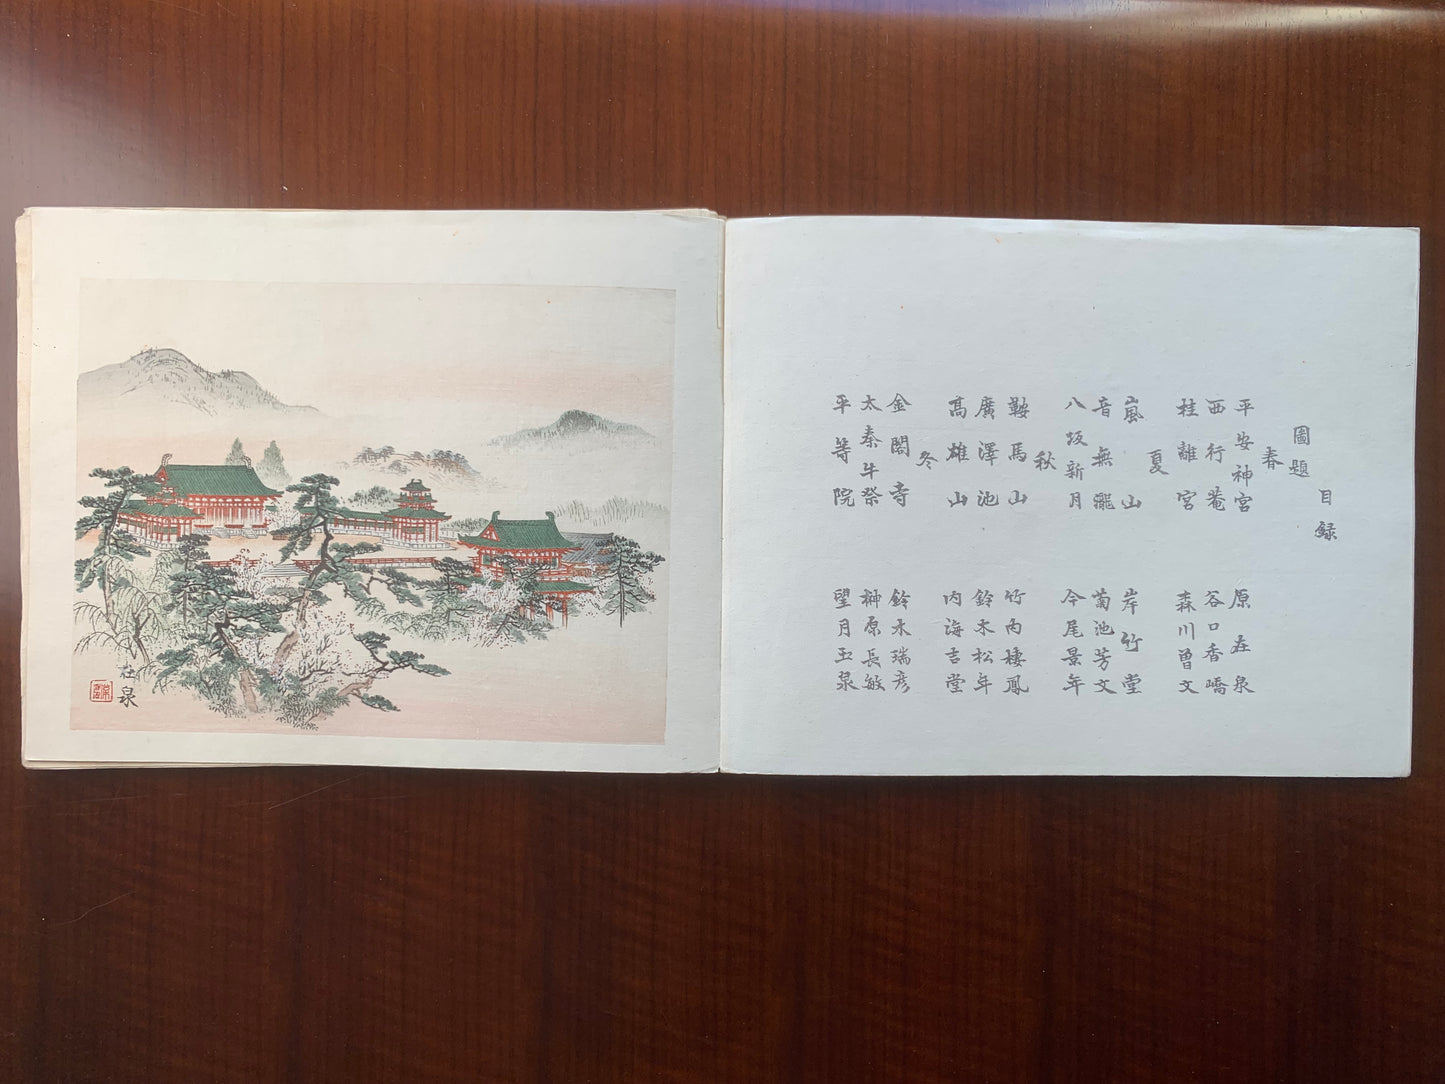 目録
圖題
春
平安神宮 原在泉
西行菴 谷口香嶠
桂離宮 森川曽文
夏
嵐山 岸竹堂
音無瀧 菊池芳文
八坂新月 今尾景年
秋
鞍馬山 竹内棲鳳
廣澤池 鈴木松年
高雄山 内海吉堂
冬
金閣寺 鈴木瑞彦
太秦牛祭 榊原長敏
平等院 望月玉泉
在泉